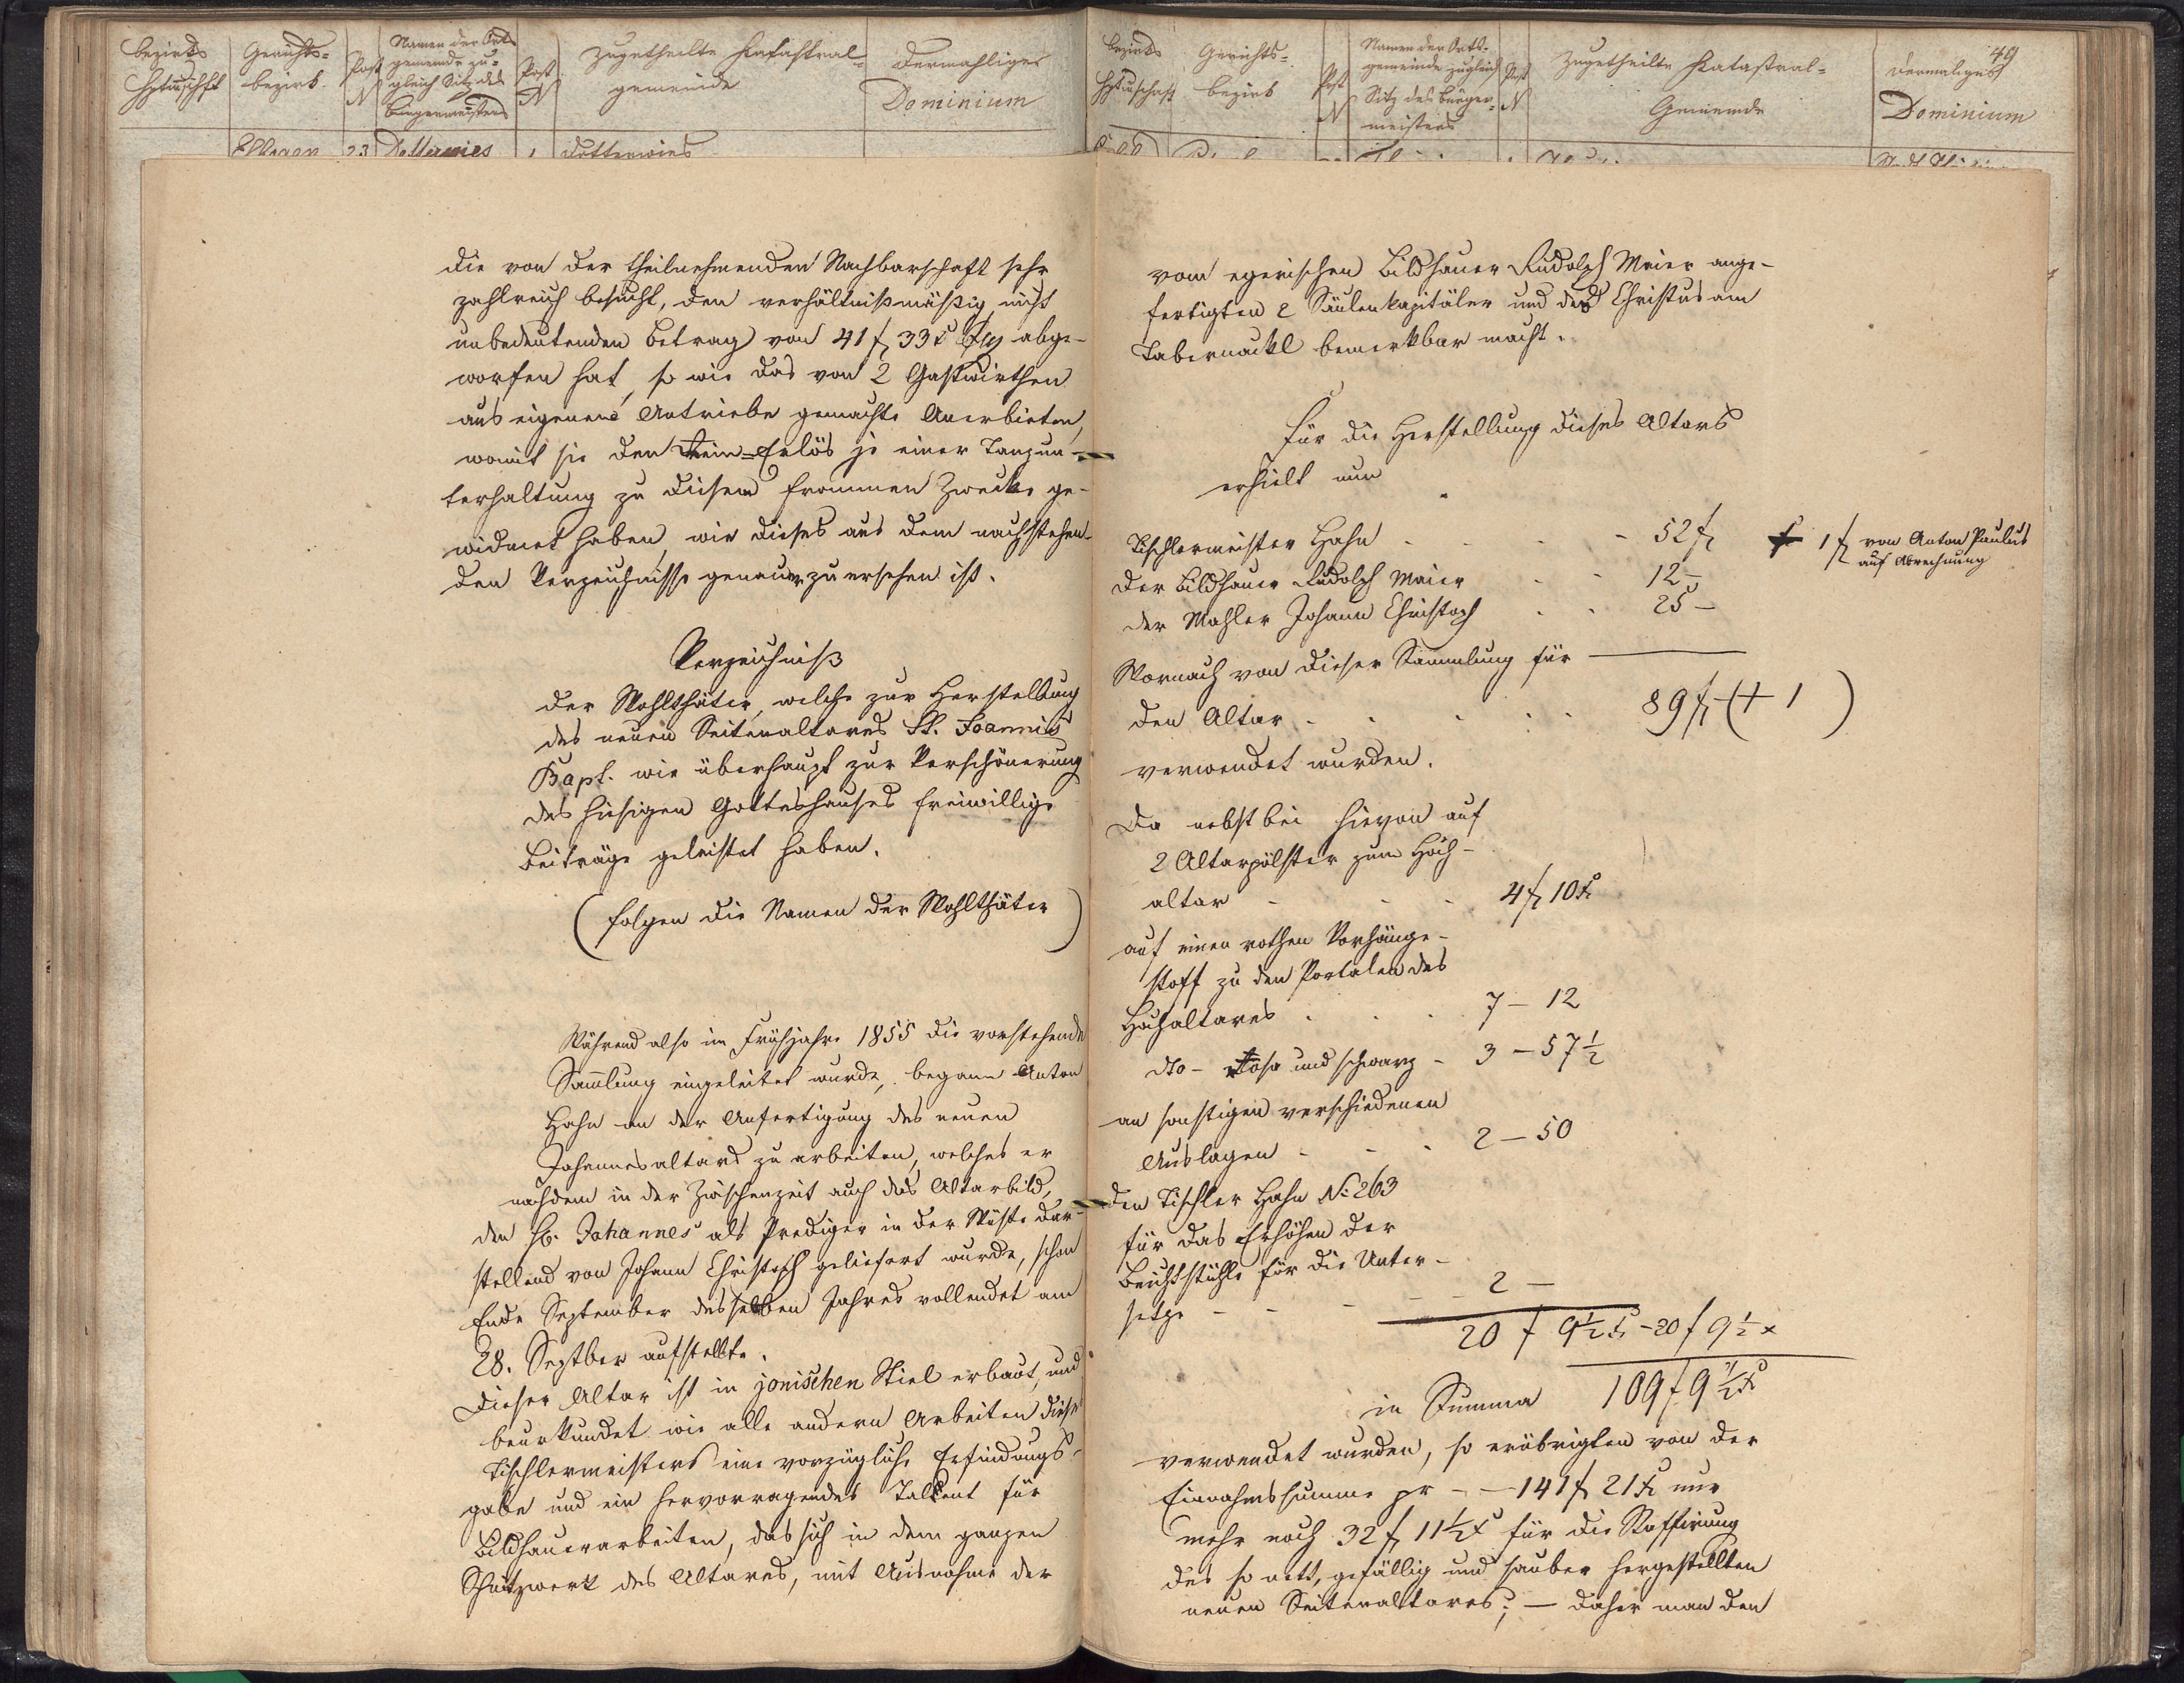 Bezirks
Htmschft
Gerichts-
bezirk.
Post
N
Namen der Orts
gemeinde zu-
gleich Sitz des
Bürgermeisters
Post
N
Zugetheilte Katastral-
gemeinde
dermahliges
Dominium
Ellbogen 23 Dotterwies 1 Dotterwies
die von der theilnehmenden Nachbarschaft sehr
zahlreich besucht, den verhältnißmäßig nicht
unbedeutenden Betrag von 41 f 33 x abge-
worfen hat, so wie das von 2 Gastwirthen
aus eigenem Antriebe gemachte Anerbieten,
womit sie den Rein-Erlös je einer Tanzun-
terhaltung zu diesem frommen Zwecke ge-
widmet haben, wie dieses aus dem nachstehen-
den Verzeichnisse genauer zu ersehen ist.
Verzeichniß
der Wohlthäter, welche zur Herstellung
des neuen Seitenaltares St. Joannis
Bapt. wie überhaupt zur Verschönerung
des hiesigen Gotteshauses freiwillige
Beiträge geleistet haben.
(folgen die Namen der Wohlthäter)
Während also im Frühjahre 1855 die vorstehende
Samlung eingeleitet wurde, begann Anton
Hahn an der Anfertigung des neuen
Johannesaltars zu arbeiten, welches er
nachdem in der Zwischenzeit auch das Altarbild,
den hl. Johannes als Prediger in der Wüste dar-
stellend von Johann Christoph geliefert wurde, schon
Ende September desselben Jahres vollendet am
28. Septber aufstellte.
Dieser Altar ist in jonischen Stiel erbaut, und
beurkundet wie alle andern Arbeiten dieses
Tischlermeisters eine vorzügliche Erfindungs-
gabe und ein hervorragendes Talent für
Bildhauerarbeiten, das sich in dem ganzen
Schnitzwerk des Altares, mit Ausnahme der
49
Bezirks
Htmschaft
Gerichts-
bezirk
Post
N
Namen der Orts-
gemeinde zugleich
Sitz des Bürger-
meisters
Post
N
Zugetheilte Katastral-
Gemeinde
dermaliges
Dominium
vom egerischen Bildhauer Rudolph Maier ange-
fertigten 2 Säulenkapitäler und des Christus am
Tabernackl bemerkbar macht.
Für die Herstellung dieses Altars
erhielt nun
Tischlermeister Hahn - - - - 52 f + 1 f von Anton Paulus
auf Abrechnung
der Bildhauer Rudolph Maier - - 12 -
der Mahler Johann Christoph - - 25 -
Wornach von dieser Sammlung für
den Altar - - - - - 89 f - (+ 1 )
verwendet wurden.
Da nebstbei hievon auf
2 Altarpölster zum Hoch-
altar - - - 4 f 10 x
auf einen rothen Vorhänge-
stoff zu den Portalen des
Hochaltares - - - 7 - 12
dto - rosa und schwarz - 3 - 57 1/2
an sonstigen verschiedenen
Auslagen - - - 2 - 50
den Tischler Hahn No 263
für das Erhöhen der
Beichtstühle für die Unter-
setze - - - - - 2 -
20 f 9 1/2 x - 20 f 9 1/2 x
in Summa 109 f 9 1/2 x
verwendet wurden, so erübrigten von der
Einnahmssumme pr - - 141 f 21 x nur
mehr noch 32 f 11 1/2 x für die Staffirung
des so nett, gefällig und sauber hergestellten
neuen Seitenaltares; - daher man den